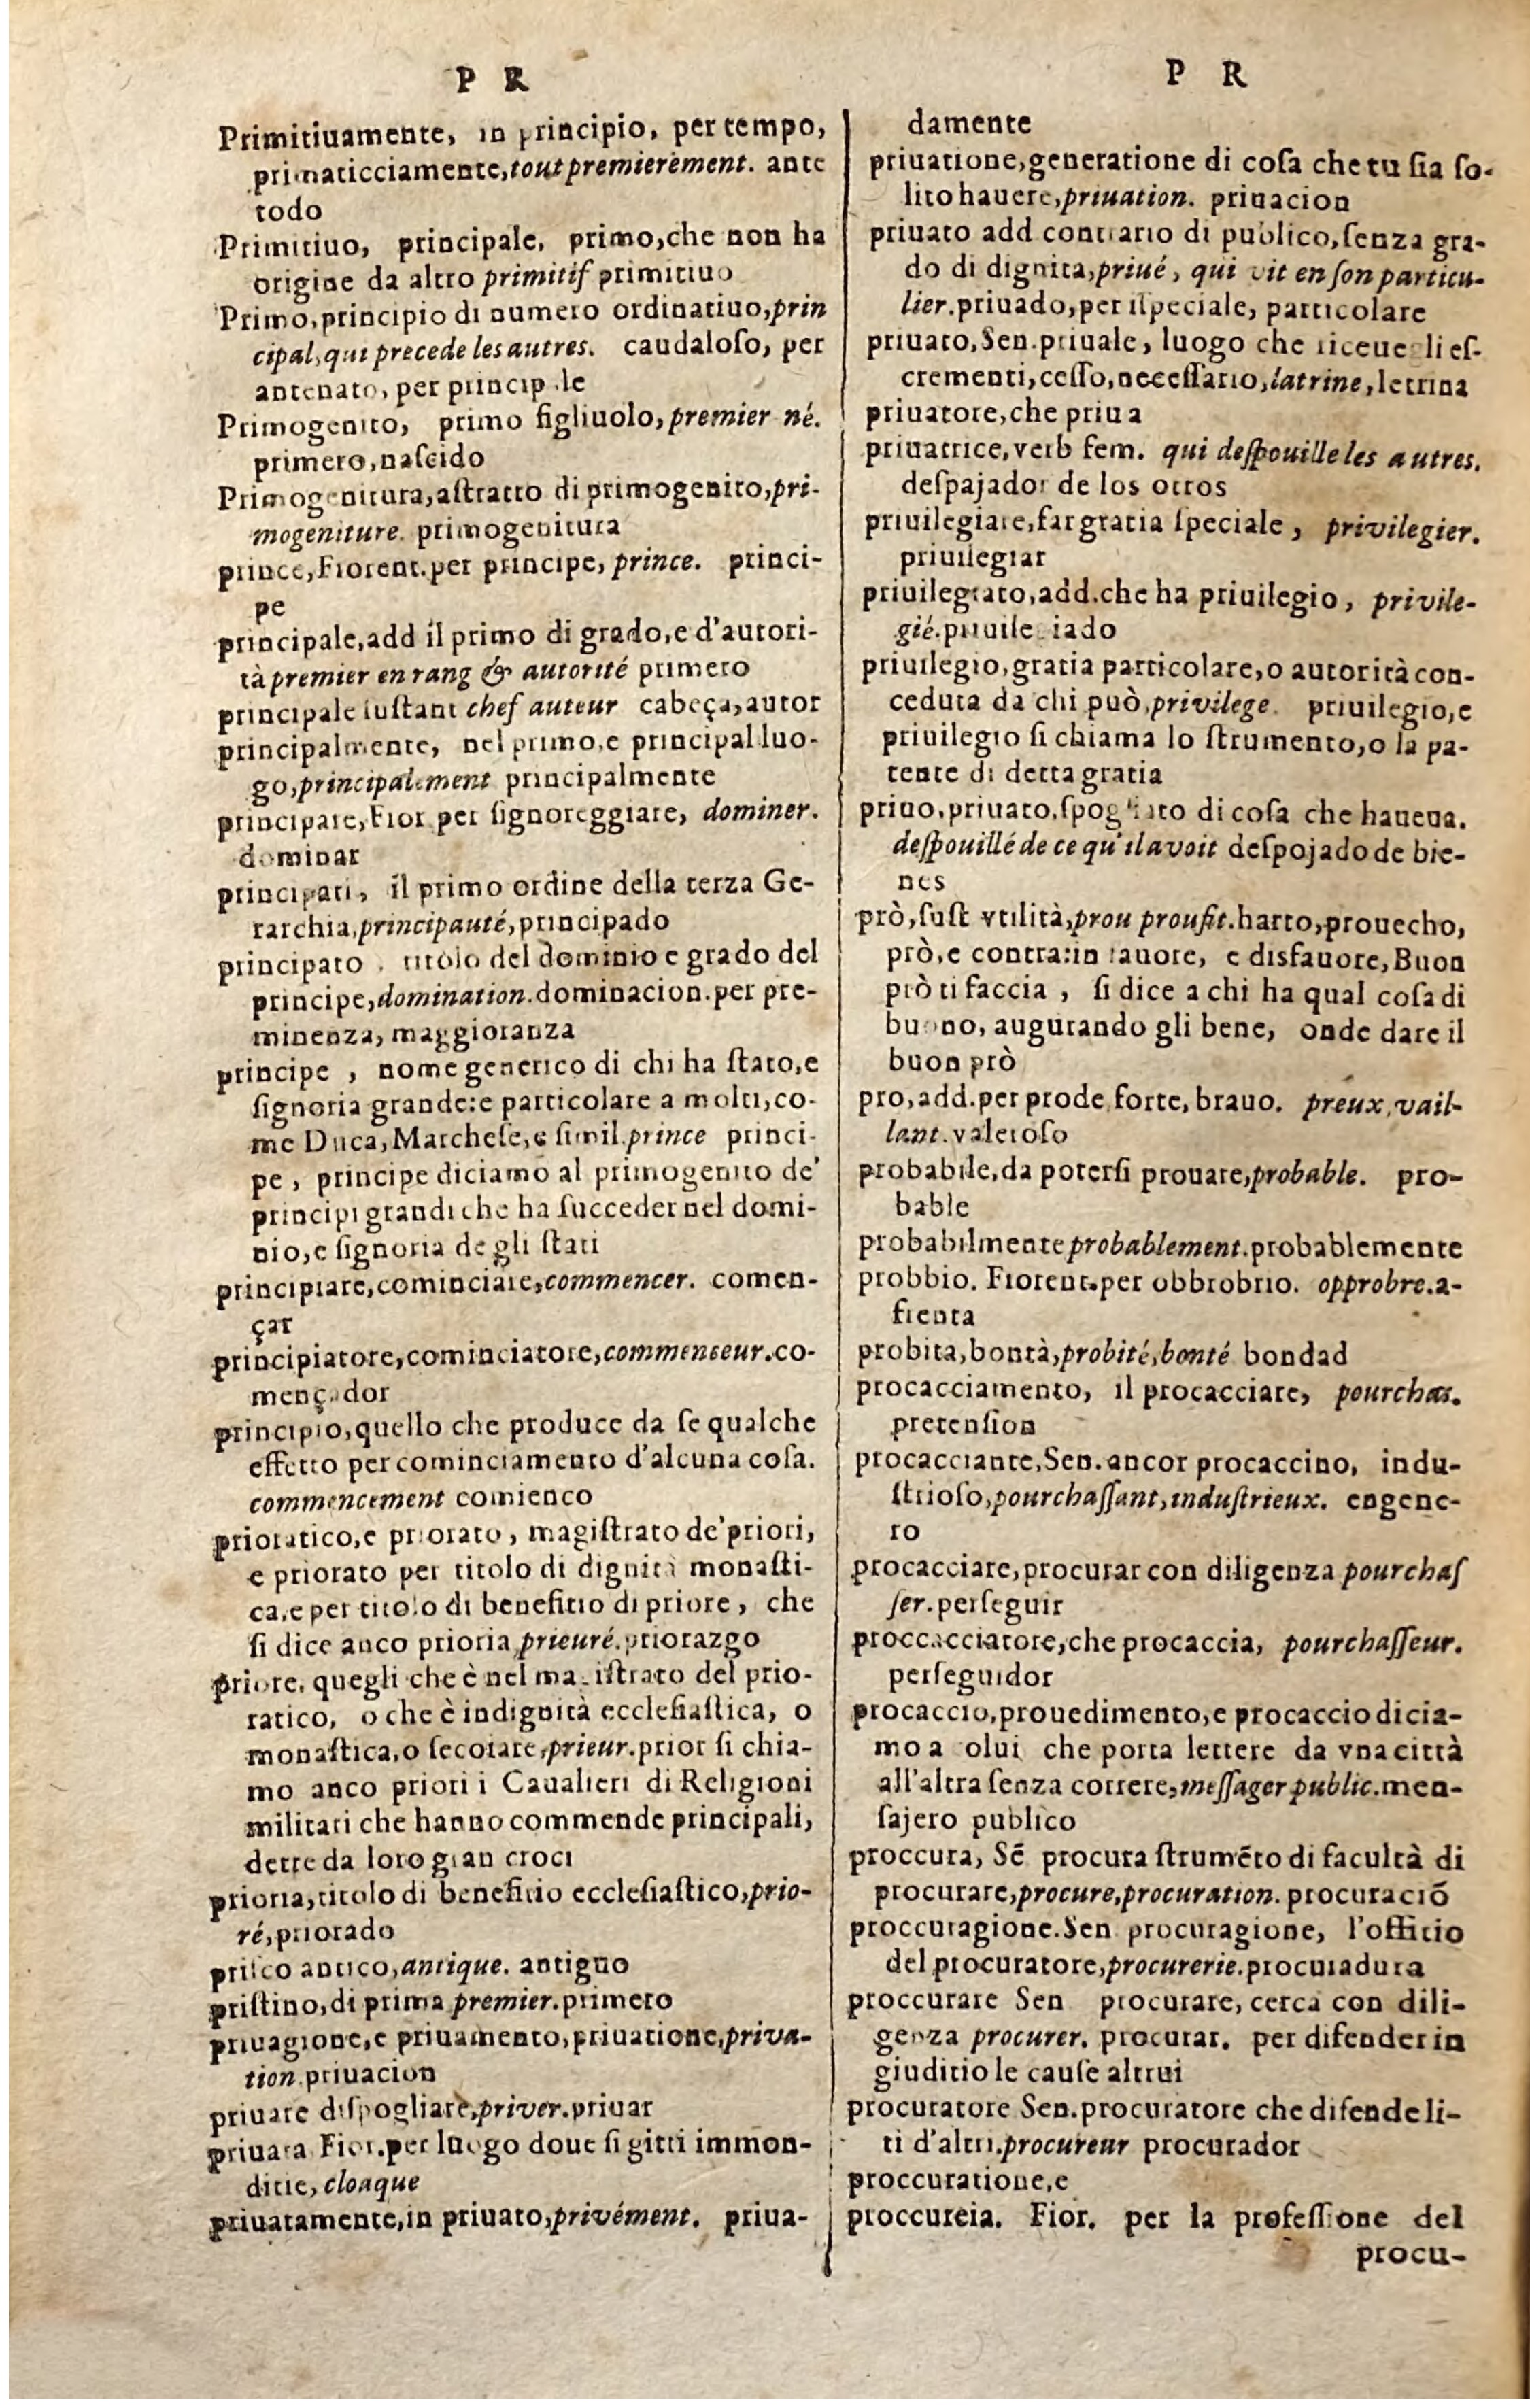 P R
Primitiuamente, in principio, per tempo,
primaticciamente, tout premierement. ante
todo
Primitiuo, principale, primo, che non ha
origine da altro primitif primitiuo
Primo, principio di numero ordinatiuo, prin
cipal, qui precede les autres. caudaloſo, per
antenato, per principale
Primogenito, primo figliuolo, premier né.
primero, naſcido
Primogenitura, aſtratto di primogenito, pri-
mogeniture. primogenitura
prince, Fiorent. per principe, prince. princi-
pe
principale, add il primo di grado, e d'autori-
tà premier en rang & autorité primero
principale ſuſtant chef auteur cabeça, autor
principalmente, nel primo, e principal luo-
go, principalement principalmente
principare, Fior per ſignoreggiare, dominer.
dominar
principati, il primo ordine della terza Ge-
rarchia, principauté, principado
principato, titolo del dominio e grado del
principe, domination. dominacion. per pre-
minenza, maggioranza
principe, nome generico di chi ha ſtato, e
ſignoria grande: e particolare a molti, co-
me Duca, Marcheſe, e ſimil. prince princi-
pe, principe diciamo al primogenito de'
principi grandi che ha ſucceder nel domi-
nio, e ſignoria degli ſtati
principiare, cominciare, commencer. comen-
çar
principiatore, cominciatore, commenceur. co-
mençador
principio, quello che produce da ſe qualche
effetto per cominciamento d'alcuna coſa.
commencement comienco
prioratico, e priorato, magiſtrato de' priori,
e priorato per titolo di dignità monaſti-
ca, e per titolo di benefitio di priore, che
ſi dice anco prioria prieuré. priorazgo
priore, quegli che è nel magiſtrato del prio-
ratico, o che è in dignità eccleſiaſtica, o
monaſtica, o ſecolare, prieur. prior ſi chia-
mo anco priori i Caualieri di Religioni
militari che hanno commende principali,
dette da loro gran croci
prioria, titolo di benefitio eccleſiaſtico, prio-
ré, priorado
priſco antico, antique. antiguo
priſtino, di prima premier. primero
priuagione, e priuamento, priuatione, priva-
tion. priuacion
priuare diſpogliare, priver. priuar
priuata Fior. per luogo doue ſi gitti immon-
ditie, cloaque
priuatamente, in priuato, privément. priua-
P R
damente
priuatione, generatione di coſa che tu ſia ſo-
lito hauere, priuation. priuacion
priuato add contrario di publico, ſenza gra-
do di dignita, priué, qui vit en ſon particu-
lier. priuado, per iſpeciale, particolare
priuato, Sen. priuale, luogo che riceue gli eſ-
crementi, ceſſo, neceſſario, latrine, letrina
priuatore, che priua
priuatrice, verb fem. qui deſpouille les autres.
deſpajador de los otros
priuilegiare, far gratia ſpeciale, privilegier.
priuilegiar
priuilegiato, add. che ha priuilegio, privile-
gié. priuilegiado
priuilegio, gratia particolare, o autorità con-
ceduta da chi può, privilege. priuilegio, e
priuilegio ſi chiama lo ſtrumento, o la pa-
tente di detta gratia
priuo, priuato, ſpogliato di coſa che haueua.
deſpouillé de ce qu'il avoit deſpojado de bie-
nes
prò, ſuſt vtilità, prou proufit. harto, prouecho,
prò, e contra: in fauore, e disfauore, Buon
prò ti faccia, ſi dice a chi ha qual coſa di
buono, augurando gli bene, onde dare il
buon prò
pro, add. per prode forte, brauo. preux, vail-
lant. valeroſo
probabile, da poterſi prouare, probable. pro-
bable
probabilmente probablement. probablemente
probbio. Fiorent. per obbrobrio. opprobre. a-
frenta
probita, bontà, probité, bonté bondad
procacciamento, il procacciare, pourchas.
pretenſion
procacciante, Sen. ancor procaccino, indu-
ſtrioſo, pourchaſſant, induſtrieux. engene-
ro
procacciare, procurar con diligenza pourchaſ
ſer. perſeguir
proccacciatore, che procaccia, pourchaſſeur.
perſeguidor
procaccio, prouedimento, e procaccio dicia-
mo a olui che porta lettere da vna città
all'altra ſenza correre, meſſager public. men-
ſajero publico
proccura, Sē procura ſtrumēto di facultà di
procurare, procure, procuration. procuraciō
proccuragione. Sen procuragione, l'offitio
del procuratore, procurerie. procuradura
proccurare Sen procurare, cerca con dili-
genza procurer. procurar. per difender in
giuditio le cauſe altrui
procuratore Sen. procuratore che difende li-
ti d'altri. procureur procurador
proccuratione, e
proccureia. Fior. per la profeſſione del
procu-